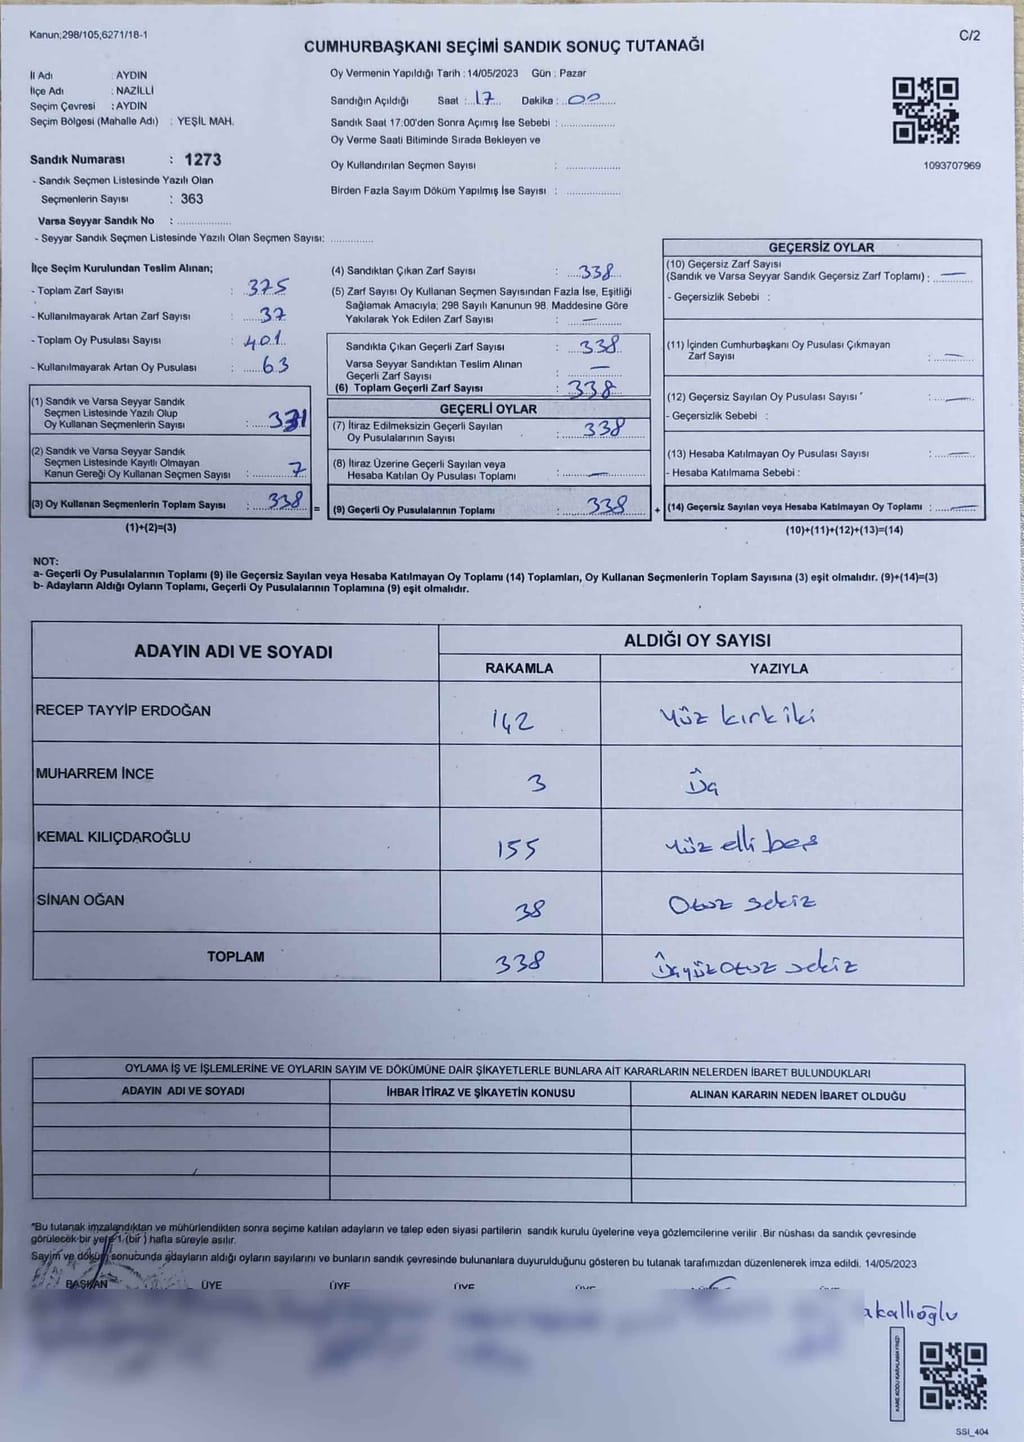 Kanun;298/105,6271/18-1
C/2
CUMHURBAŞKANI SEÇİMİ SANDIK SONUÇ TUTANAĞI
İl Adı : AYDIN
İlçe Adı : NAZİLLİ
Seçim Çevresi : AYDIN
Seçim Bölgesi (Mahalle Adı) : YEŞİL MAH.
Sandık Numarası : 1273
- Sandık Seçmen Listesinde Yazılı Olan
Seçmenlerin Sayısı : 363
Varsa Seyyar Sandık No : ....................
- Seyyar Sandık Seçmen Listesinde Yazılı Olan Seçmen Sayısı: ...............
Oy Vermenin Yapıldığı Tarih : 14/05/2023 Gün : Pazar
Sandığın Açıldığı Saat : 17 Dakika : 00
Sandık Saat 17:00'den Sonra Açımış İse Sebebi : ...................
Oy Verme Saati Bitiminde Sırada Bekleyen ve
Oy Kullandırılan Seçmen Sayısı : ...................
Birden Fazla Sayım Döküm Yapılmış İse Sayısı : ...................
1093707969
İlçe Seçim Kurulundan Teslim Alınan;
- Toplam Zarf Sayısı : 375
- Kullanılmayarak Artan Zarf Sayısı : 37
- Toplam Oy Pusulası Sayısı : 401
- Kullanılmayarak Artan Oy Pusulası : 63
(1) Sandık ve Varsa Seyyar Sandık
Seçmen Listesinde Yazılı Olup
Oy Kullanan Seçmenlerin Sayısı : 331
(2) Sandık ve Varsa Seyyar Sandık
Seçmen Listesinde Kayıtlı Olmayan
Kanun Gereği Oy Kullanan Seçmen Sayısı : 7
(3) Oy Kullanan Seçmenlerin Toplam Sayısı : 338 =
(1)+(2)=(3)
(4) Sandıktan Çıkan Zarf Sayısı : 338
(5) Zarf Sayısı Oy Kullanan Seçmen Sayısından Fazla İse, Eşitliği
Sağlamak Amacıyla; 298 Sayılı Kanunun 98. Maddesine Göre
Yakılarak Yok Edilen Zarf Sayısı : —
Sandıkta Çıkan Geçerli Zarf Sayısı : 338
Varsa Seyyar Sandıktan Teslim Alınan
Geçerli Zarf Sayısı : —
(6) Toplam Geçerli Zarf Sayısı : 338
GEÇERLİ OYLAR
(7) İtiraz Edilmeksizin Geçerli Sayılan
Oy Pusulalarının Sayısı : 338
(8) İtiraz Üzerine Geçerli Sayılan veya
Hesaba Katılan Oy Pusulası Toplamı : —
(9) Geçerli Oy Pusulalarının Toplamı : 338 +
GEÇERSİZ OYLAR
(10) Geçersiz Zarf Sayısı
(Sandık ve Varsa Seyyar Sandık Geçersiz Zarf Toplamı) : —
- Geçersizlik Sebebi :
(11) İçinden Cumhurbaşkanı Oy Pusulası Çıkmayan
Zarf Sayısı : —
(12) Geçersiz Sayılan Oy Pusulası Sayısı : —
- Geçersizlik Sebebi :
(13) Hesaba Katılmayan Oy Pusulası Sayısı : —
- Hesaba Katılmama Sebebi :
(14) Geçersiz Sayılan veya Hesaba Katılmayan Oy Toplamı : —
(10)+(11)+(12)+(13)=(14)
NOT:
a- Geçerli Oy Pusulalarının Toplamı (9) ile Geçersiz Sayılan veya Hesaba Katılmayan Oy Toplamı (14) Toplamları, Oy Kullanan Seçmenlerin Toplam Sayısına (3) eşit olmalıdır. (9)+(14)=(3)
b- Adayların Aldığı Oyların Toplamı, Geçerli Oy Pusulalarının Toplamına (9) eşit olmalıdır.
ADAYIN ADI VE SOYADI ALDIĞI OY SAYISI
RAKAMLA YAZIYLA
RECEP TAYYİP ERDOĞAN 142 Yüz kırk iki
MUHARREM İNCE 3 Üç
KEMAL KILIÇDAROĞLU 155 Yüz elli beş
SİNAN OĞAN 38 Otuz sekiz
TOPLAM 338 Üçyüz otuz sekiz
OYLAMA İŞ VE İŞLEMLERİNE VE OYLARIN SAYIM VE DÖKÜMÜNE DAİR ŞİKAYETLERLE BUNLARA AİT KARARLARIN NELERDEN İBARET BULUNDUKLARI
ADAYIN ADI VE SOYADI İHBAR İTİRAZ VE ŞİKAYETİN KONUSU ALINAN KARARIN NEDEN İBARET OLDUĞU
"Bu tutanak imzalandıktan ve mühürlendikten sonra seçime katılan adayların ve talep eden siyasi partilerin sandık kurulu üyelerine veya gözlemcilerine verilir .Bir nüshası da sandık çevresinde
görülecek bir yere 1 (bir ) hafta süreyle asılır.
Sayım ve döküm sonucunda adayların aldığı oyların sayılarını ve bunların sandık çevresinde bulunanlara duyurulduğunu gösteren bu tutanak tarafımızdan düzenlenerek imza edildi. 14/05/2023
BAŞKAN ÜYE ÜYE ÜYE
akallıoğlu
SSI_404